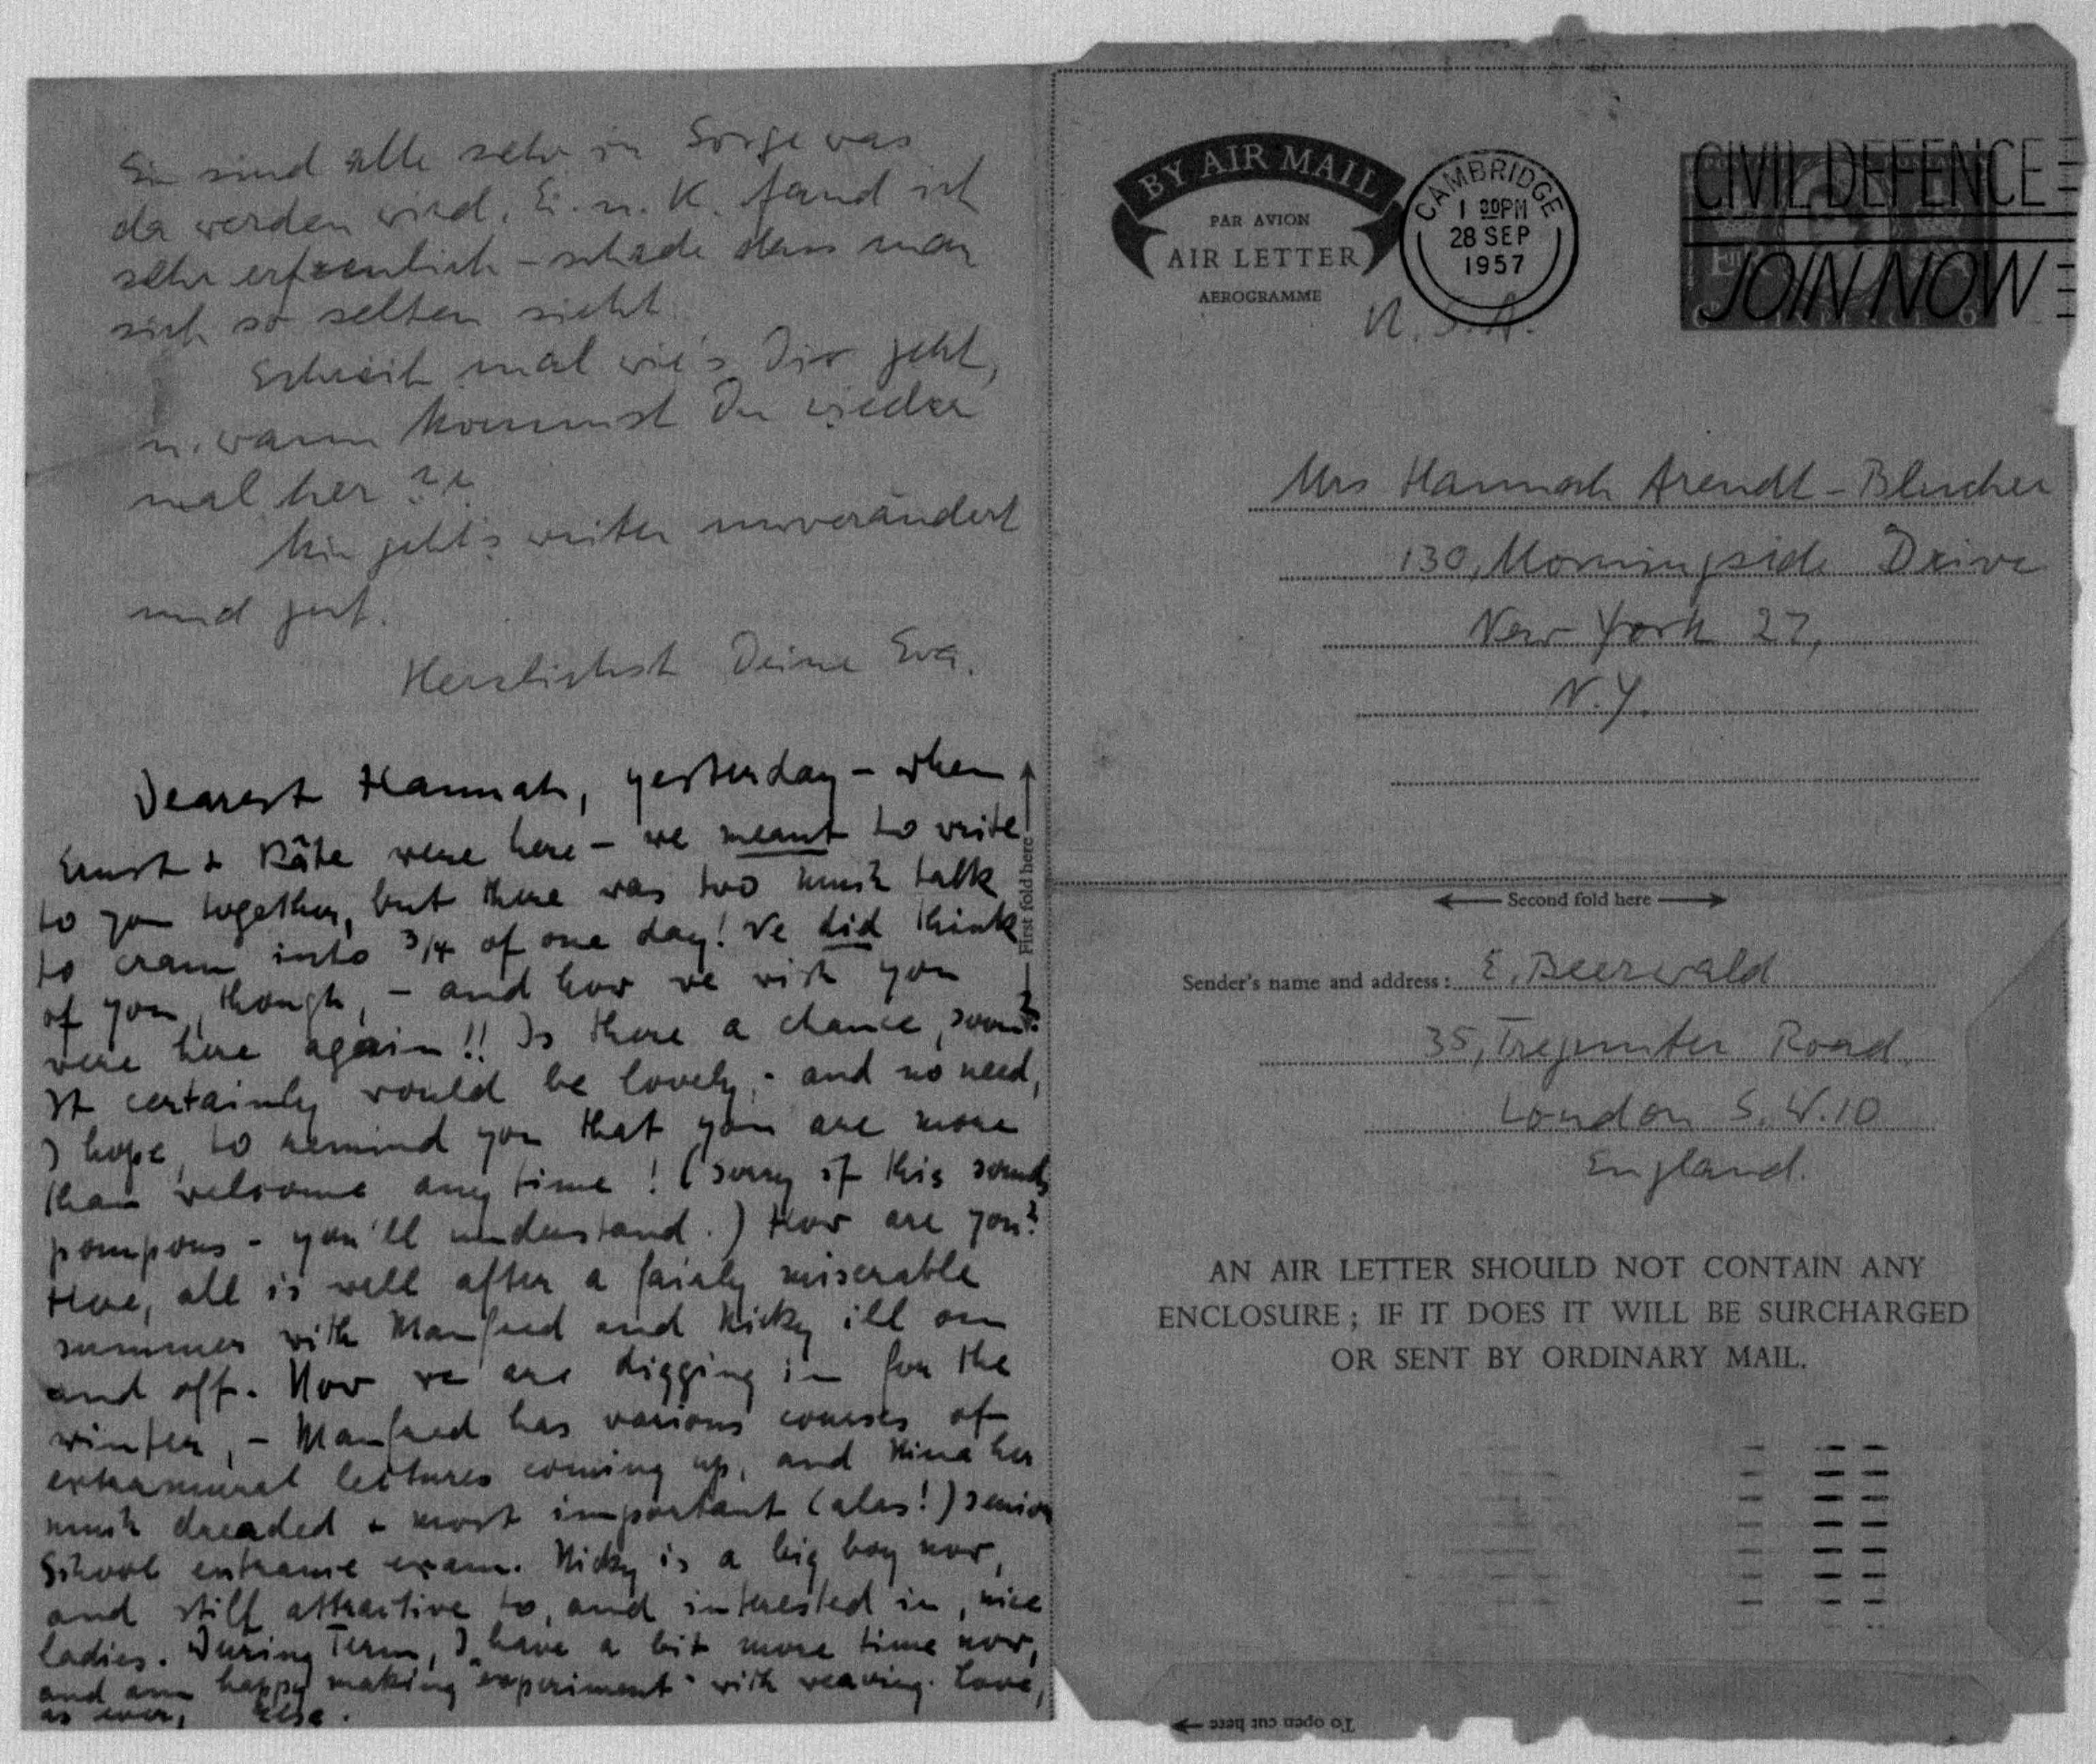 Sie sind alle sehr in Sorge was
da werden wird. E. u. K. fand ich
sehr erfreulich - schade dass man
sich so selten sieht.
Schreib mal wie's Dir geht,
u. wann kommst Du wieder
mal her??
Mir geht's weiter unverändert
und gut.
Herzlichst Deine Eva.
Dearest Hannah, yesterday - when
Ernst & Käte were here - we meant to write
to you together, but there was too much talk
to cram into 3/4 of one day! We did think
of you, though, - and how we wish you
were here again!! Is there a chance, soon?
It certainly would be lovely, - and no need,
I hope, to remind you that you are more
than welcome any time! (Sorry if this sounds
pompous - you'll understand.) How are you?
Here, all is well after a fairly miserable
summer with Manfred and Nicky ill on
and off. Now we are digging in for the
winter, - Manfred has various courses of
extramural lectures coming up, and Nina her
much dreaded & most important (alas!) senior
School entrance exam. Nicky is a big boy now,
and still attractive to, and interested in, nice
ladies. During Term, I have a bit more time now,
and am happy making "experiment" with weaving. Love,
as ever, Else.
First fold here
BY AIR MAIL
PAR AVION
AIR LETTER
AEROGRAMME
CAMBRIDGE
1 30PM
28 SEP
1957
CIVIL DEFENCE
JOIN NOW
POSTAGE POSTAGE
E II R
6D SIXPENCE 6D
U.S.A.
Mrs Hannah Arendt-Bluecher
130, Morningside Drive
New York 27,
N.Y.
Second fold here
Sender's name and address: E. Beerwald
35, Tregunter Road,
London S.W.10
England.
AN AIR LETTER SHOULD NOT CONTAIN ANY
ENCLOSURE; IF IT DOES IT WILL BE SURCHARGED
OR SENT BY ORDINARY MAIL.
To open cut here